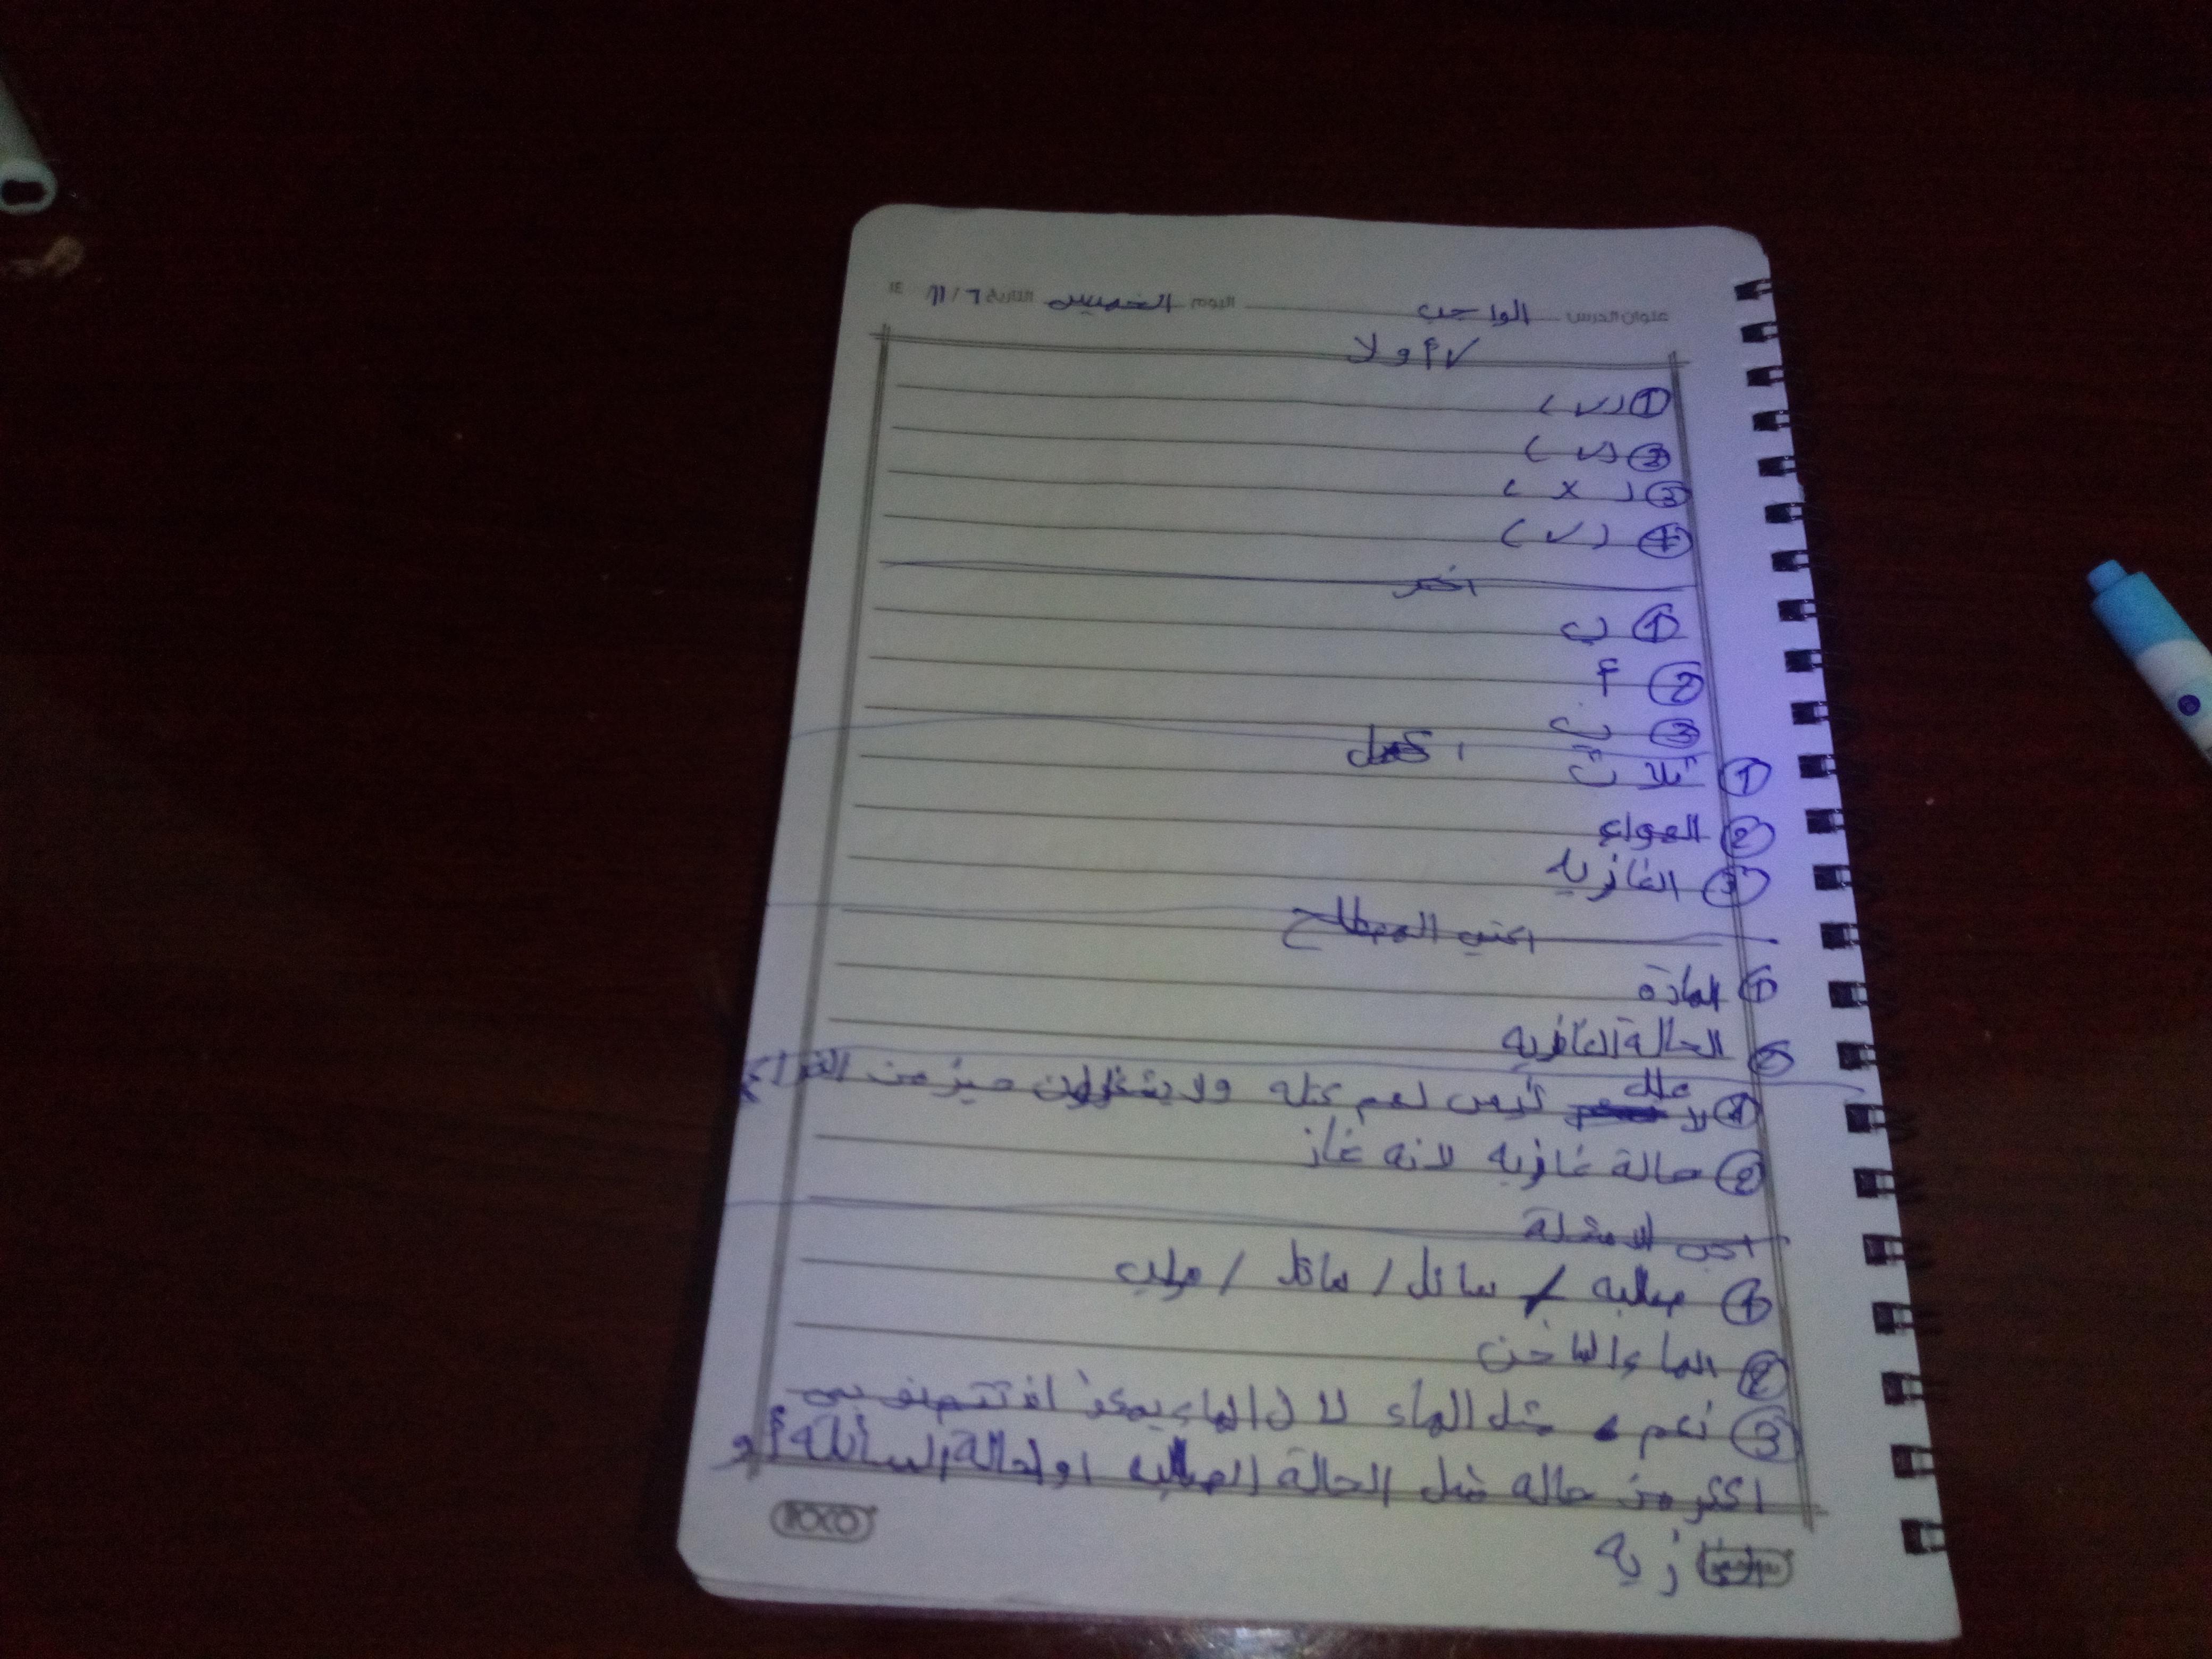 عنوان الدرس الواجب اليوم الخميس التاريخ ٦ / ١١ ١٤
أولا
① (✓)
② (✓)
③ (×)
④ (✓)
اختر
① ب
② أ
③ ب
اكمل
① ثلاث
② الهواء
③ الغازيه
اكتب المصطلح
① المادة
② الحالة الغازيه
علل
① لا ليس لهم كتله ولا يشغلون حيز من الفراغ
② حالة غازيه لانه غاز
اجب الامثلة
① صلبه / سائل / سائل / صلب
② الماء الساخن
③ نعم مثل الماء لا ن الماء يمكن
اكثر من حاله مثل الحالة الصلبه او الحالة السائلة أو
الغازيه
roco